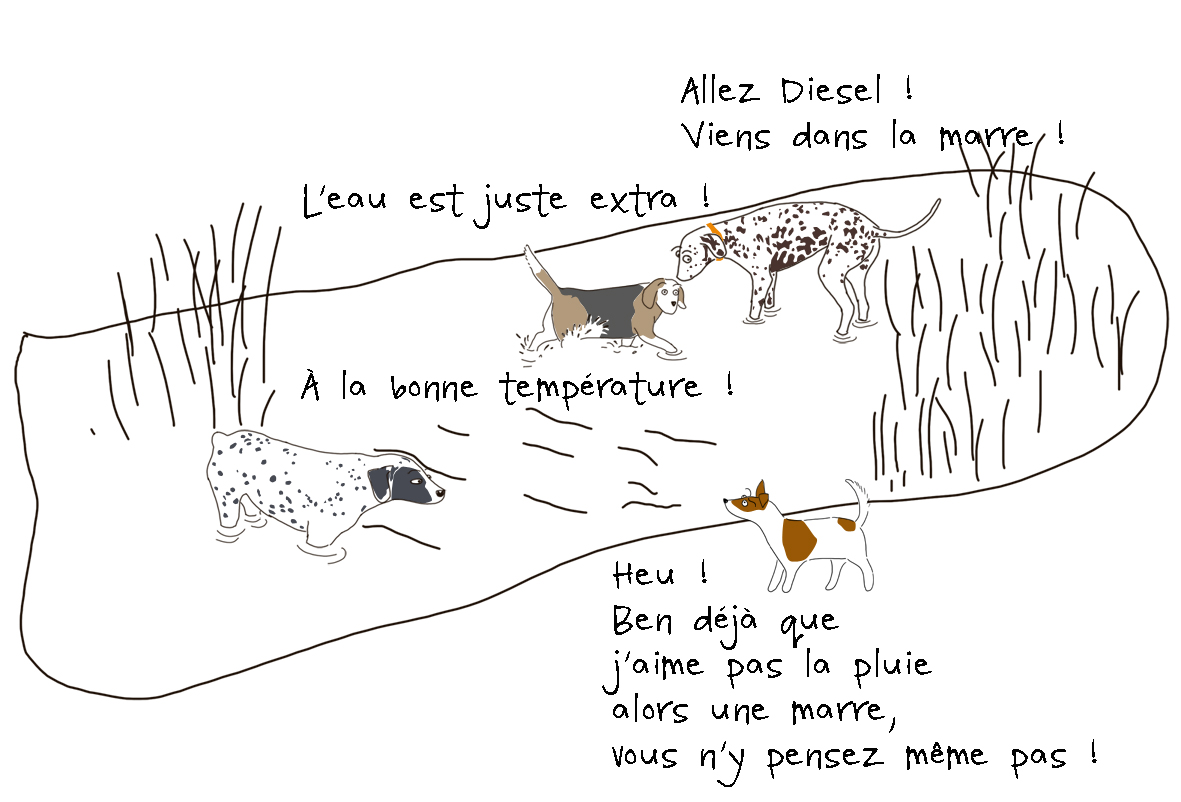 Allez Diesel !
Viens dans la marre !
L'eau est juste extra !
À la bonne température !
Heu !
Ben déjà que
j'aime pas la pluie
alors une marre,
vous n'y pensez même pas !